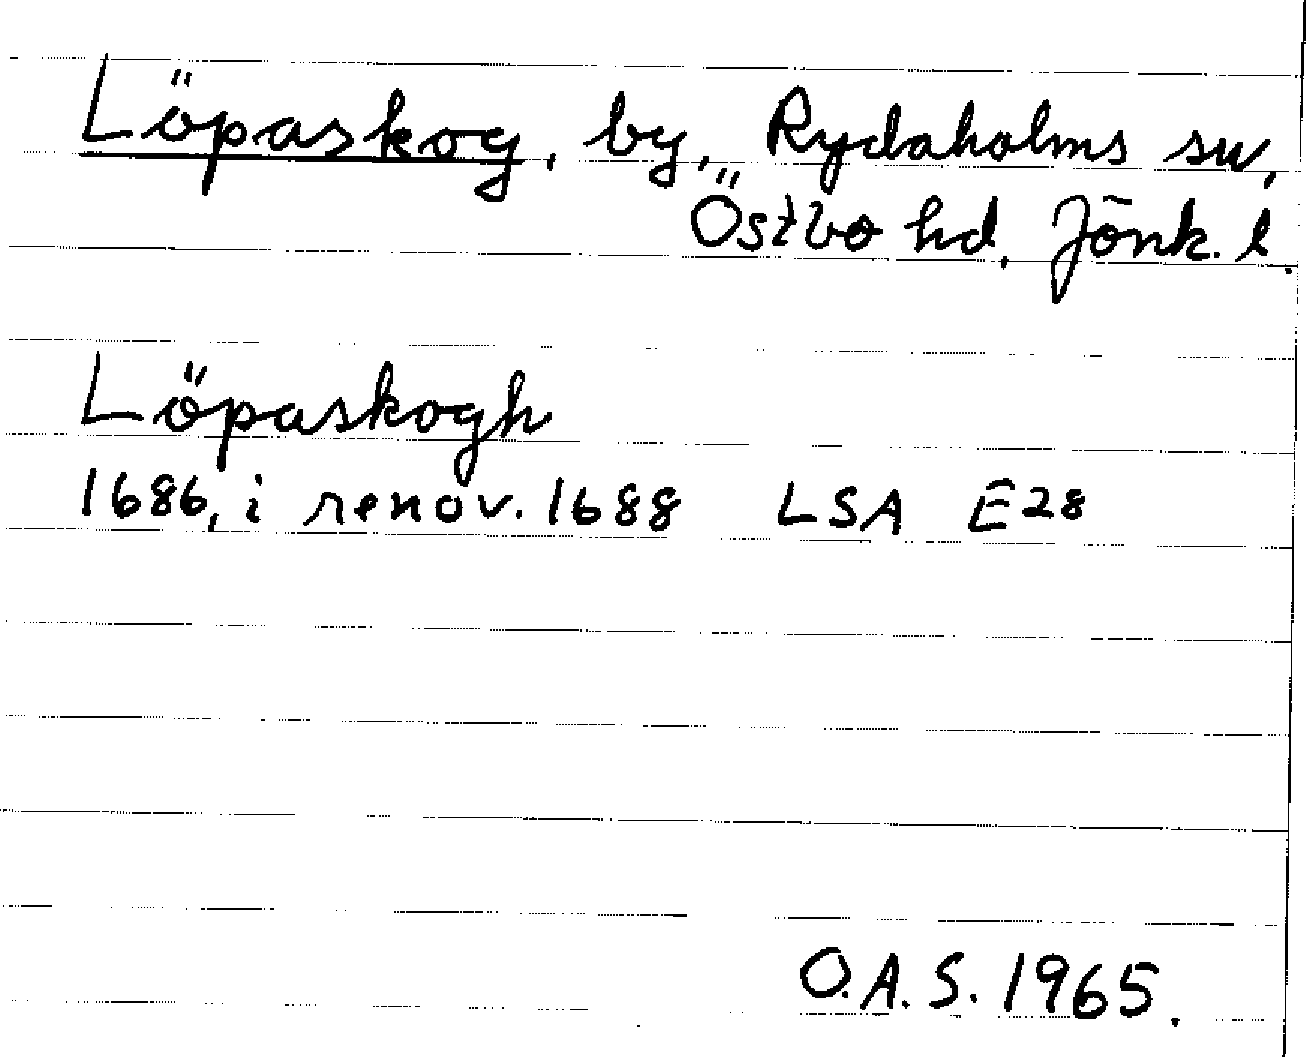 Löpaskog, by, Rydaholms sn,
Östbo hd, Jönk. l.
Löpaskogh
1686, i renov. 1688 LSA E28
O.A.S. 1965.